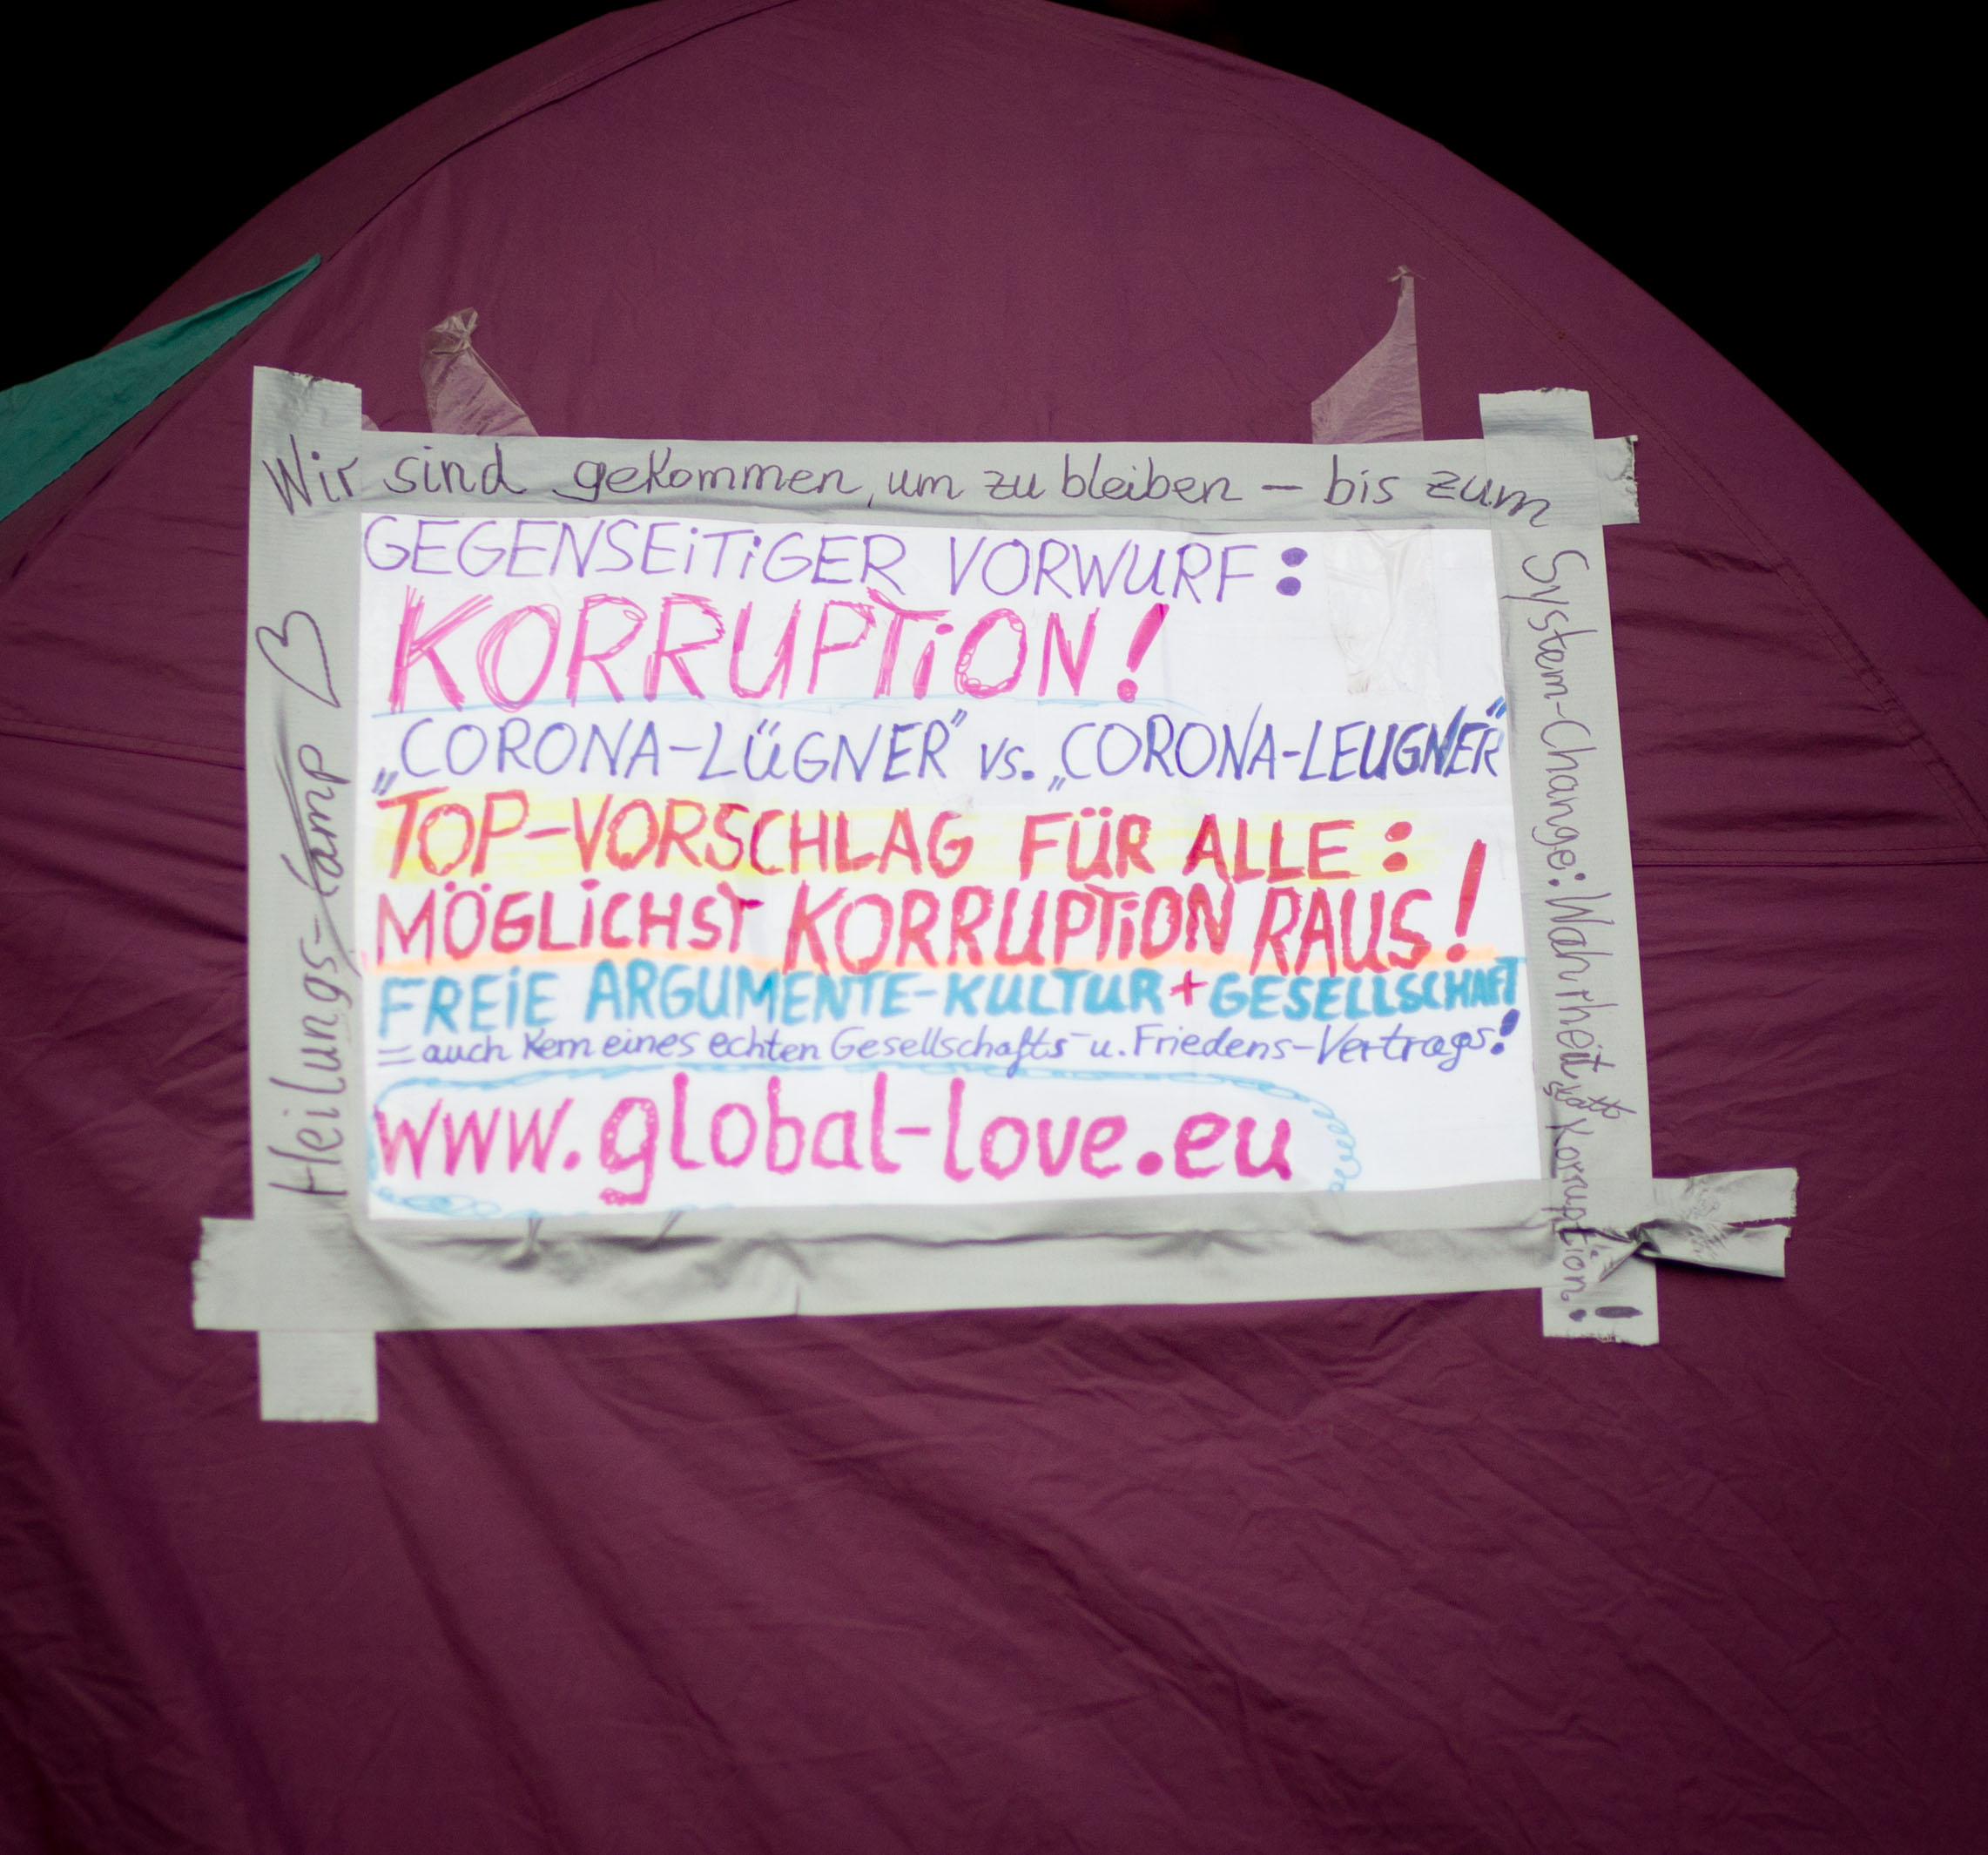 Wir sind gekommen, um zu bleiben – bis zum
System-Change: Wahrheit Korruption!
Heilungs-Camp
GEGENSEiTiGER VORWURF:
KORRUPTiON!
„CORONA-LÜGNER" vs. „CORONA-LEUGNER"
TOP-VORSCHLAG FÜR ALLE:
MÖGLiCHST KORRUPTiON RAUS!
FREiE ARGUMENTE-KULTUR + GESELLSCHAFT
= auch Kern eines echten Gesellschafts- u. Friedens-Vertrags!
www.global-love.eu